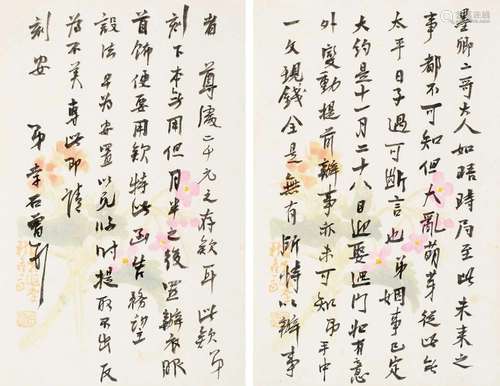 墨卿二哥大人如晤時局至此未来之
事都不可知但大亂萌芽從此無
太平日子過可斷言也弟姻事已定
大約是十一月二十八日迎娶過门如有意
外變動提前辦事亦未可知弟手中
一文現錢全是無有所恃以辦事
者尊處二千元之存欵耳此欵弟
刻下本無用但月半之後置辦衣服
首飾便要用欵特此函告務望
設法早为安置以免临时提取不出反
为不美专此即請
刻安
弟李石曾